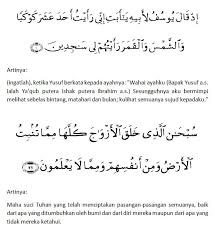 إِذْ قَالَ يُوسُفُ لِأَبِيهِ يَٰٓأَبَتِ إِنِّي رَأَيْتُ أَحَدَ عَشَرَ كَوْكَبًا
وَٱلشَّمْسَ وَٱلْقَمَرَ رَأَيْتُهُمْ لِي سَٰجِدِينَ
Artinya:
(ingatlah), ketika Yusuf berkata kepada ayahnya: "Wahai ayahku (Bapak Yusuf a.s.
ialah Ya'qub putera Ishak putera Ibrahim a.s.) Sesungguhnya aku bermimpi
melihat sebelas bintang, matahari dan bulan; kulihat semuanya sujud kepadaku."
سُبْحَٰنَ ٱلَّذِي خَلَقَ ٱلْأَزْوَٰجَ كُلَّهَا مِمَّا تُنۢبِتُ
ٱلْأَرْضُ وَمِنْ أَنفُسِهِمْ وَمِمَّا لَا يَعْلَمُونَ
Artinya:
Maha suci Tuhan yang telah menciptakan pasangan-pasangan semuanya, baik
dari apa yang ditumbuhkan oleh bumi dan dari diri mereka maupun dari apa yang
tidak mereka ketahui.